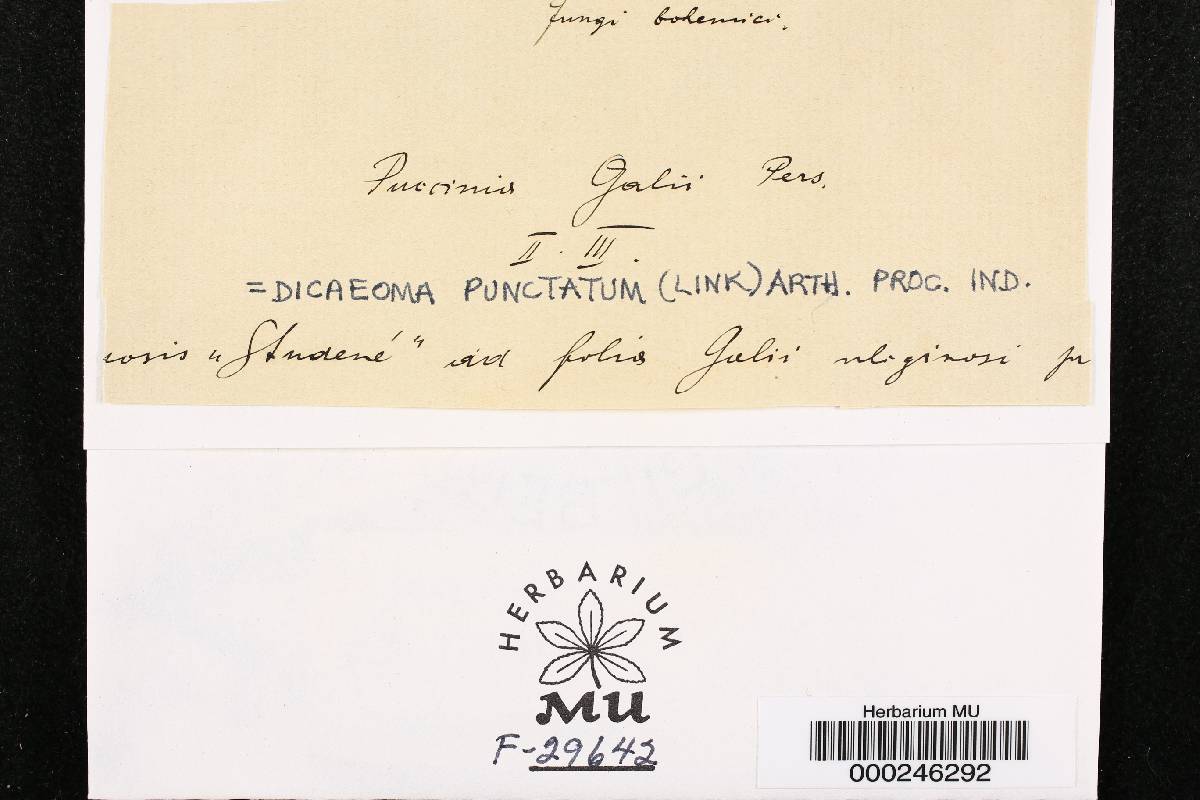 Fungi bohemici.
Puccinia Galii Pers.
II. III.
=DICAEOMA PUNCTATUM (LINK) ARTH. PROC. IND.
cosis „Studené“ ad folia Galii uliginosi
HERBARIUM
MU
F-29642
Herbarium MU
000246292